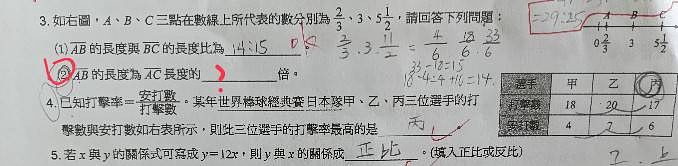 3. 如右圖，A、B、C 三點在數線上所代表的數分別為 2/3、3、5 1/2，請回答下列問題：
=29:25
A B C
0 2/3 3 5 1/2
(1) AB 的長度與 BC 的長度比為 14:15 ok
2/3 . 3 . 11/2 = 4/6 18/6 33/6
33-18=15
18-4=14
(2) AB 的長度為 AC 長度的 ? 倍。
4. 已知打擊率=安打數/打擊數。某年世界棒球經典賽日本隊甲、乙、丙三位選手的打
擊數與安打數如右表所示，則此三位選手的打擊率最高的是 丙
選手 甲 乙 丙
打擊數 18 20 17
安打數 4 7 6
5. 若 x 與 y 的關係式可寫成 y=12x，則 y 與 x 的關係成 正比 。(填入正比或反比)